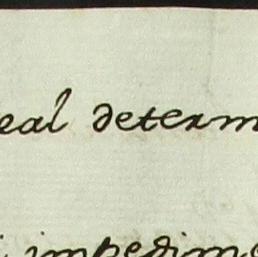 eal determ
i impedime